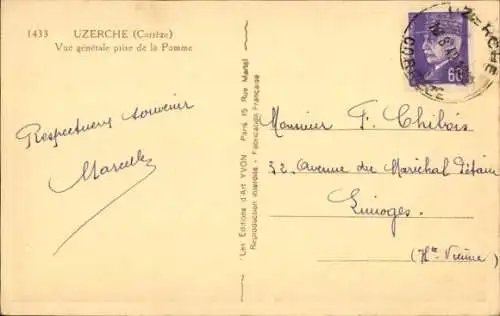 1433 UZERCHE (Corrèze)
Vue générale prise de la Pomme
UZERCHE
CORRÈZE
60
Respectueux souvenir
Marcelle
"Les Éditions d'Art YVON" Paris 15 Rue Martel
Reproduction interdite - Fabrication Française
Monsieur F. Chibois
32, Avenue du Maréchal Pétain
Limoges.
(Hte Vienne)